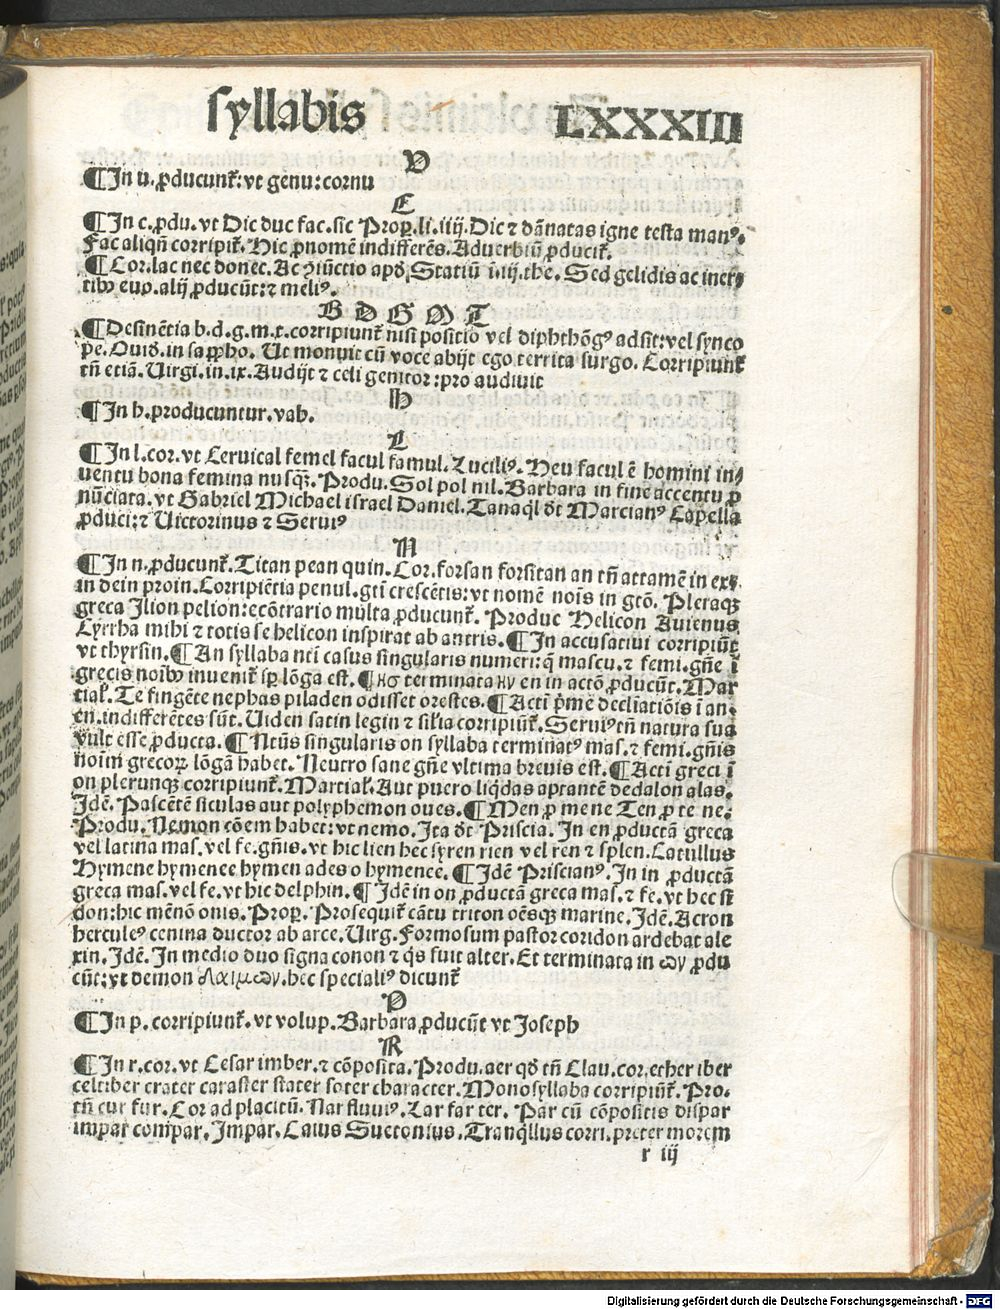 syllabis LXXXIII
V
¶In u.ꝓducunt᷑:vt genu:cornu
C
¶In c.ꝓdu.vt Dic duc fac.sic Prop̱.li.iiij.Dic ⁊ dānatas igne testa manꝰ.
Fac aliqñ corripit᷑.Hic ꝓnomē indifferēs.Aduerbiū ꝓducit᷑.
¶Cor.lac nec donec.Ac ꝯiūctio apđ Statiū i.iij.the.Sed gelidis ac iner
alij ꝓducūt:⁊ meliꝰ.
B D G M T
¶Desinētia b.d.g.m.t.corripiunt᷑ nisi positio vel diphthōgꝰ adsit:vel synco
pe.Ouiđ.in sappho.Ut monuit cū voce abijt ego territa surgo.Corripiunt᷑
tñ etiā.Uirgi.in.ix.Audijt ⁊ celi genitor:pro audiuit
H
¶In h.producuntur.vah.
L
¶In l.cor.vt Ceruical semel facul famul.Luciliꝰ.Heu facul ē homini in
uentu bona femina nusqꝫ.Produ.Sol pol nil.Barbara in fine accentu ꝓ
nūciata.vt Gabriel Michael israel Daniel.Tanaql đt Marcianꝰ Capella
ꝓduci:⁊ Uictorinus ⁊ Seruiꝰ
N
¶In n.ꝓducunt᷑.Titan pean quin.Cor.forsan forsitan an tñ attamē in exī
in dein proin.Corripiētia penul.gti crescētis:vt nomē nois in gtō.Pleraqꝫ
greca Ilion pelion:ecōtrario multa ꝓducunt᷑.Produc Helicon Auienus
Cyrrha mihi ⁊ totis se helicon inspirat ab antris.¶In accusatiui corripiūt᷑
vt thyrsin.¶An syllaba nti casus singularis numeri:q̄ mascu.⁊ femi.gñe ī
grecis noībꝰ inuenit᷑ sꝑ lōga est.¶ terminata en in actō ꝓducūt.Mar
tial᷑.Te fingēte nephas piladen odisset orestes.¶Acti p̄me decliatiōis ī an.
en.indifferētes sūt.Uiden satin legin ⁊ silia corripiūt᷑.Seruiꝰ tñ natura sua
vult esse ꝓducta.¶Ntūs singularis on syllaba terminatꝰ mas.⁊ femi.gñis
noīm grecoꝝ lōgā habet.Neutro sane gñe vltima breuis est.¶Acti greci ī
on plerunqꝫ corripiunt᷑.Martial᷑.Aut puero liqdas aptantē dedalon alas.
Idē.Pascētē siculas aut polyphemon oues.¶Men ꝓ mene Ten ꝓ te ne.
Produ.Nemon cōem habet:vt nemo.Ita đt Priscia.In en ꝓductā greca
vel latina mas.vel fe.gñis.vt hic lien hec syren rien vel ren ⁊ splen.Catullus
Hymene hymenee hymen ades o hymenee.¶Idē Priscianꝰ.In in ꝓductā
greca mas.vel fe.vt hic delphin.¶Idē in on ꝓductā greca mas.⁊ fe.vt hec si
don:hic mēnō onis.Prop̱.Prosequit᷑ cātu triton oēsqꝫ marine.Idē.Acron
herculeꝰ cenina ductor ab arce.Uirg.Formosum pastor coridon ardebat ale
xin.Idē.In medio duo signa conon ⁊ q̇s fuit alter.Et terminata in ων ꝓdu
cūt:vt demon δαιμων.hec specialiꝰ dicunt᷑
P
¶In p.corripiunt᷑.vt volup.Barbara ꝓducūt vt Joseph
R
¶In r.cor.vt Cesar imber.⁊ cōposita.Produ.aer qđ tñ Clau.cor.ether iber
celtiber crater caraster stater soter character.Monosyllaba corripiūt᷑.Pro.
tñ cur fur.Cor ad placitū.Nar fluuiꝰ.Lar far ter.Par cū cōpositis dispar
impar compar.Impar.Caius Suetonius.Tranqllus corri.preter morem
r iij
Digitalisierung gefördert durch die Deutsche Forschungsgemeinschaft - DFG